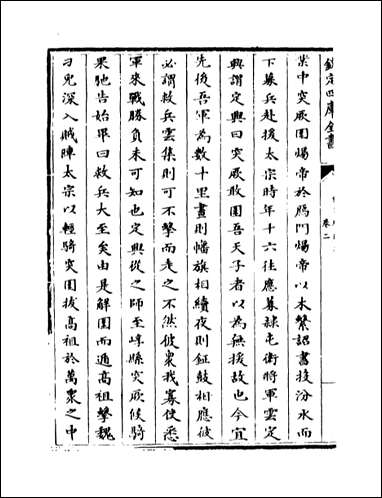 欽定四庫全書
卷二
業中突厥圍煬帝於鴈門煬帝以木繫詔書投汾水而
下募兵赴援太宗時年十六往應募隸屯衛將軍雲定
興謂定興曰突厥敢圍吾天子者以為無援故也今宜
先後吾軍為數十里晝則幡旗相續夜則鉦鼓相應彼
必謂救兵雲集則可不擊而走之不然彼衆我寡使悉
軍來戰勝負未可知也定興從之師至崞縣突厥候騎
果馳告始畢曰救兵大至矣由是解圍而遁高祖擊魏
刁兒深入賊陣太宗以輕騎突圍拔高祖於萬衆之中